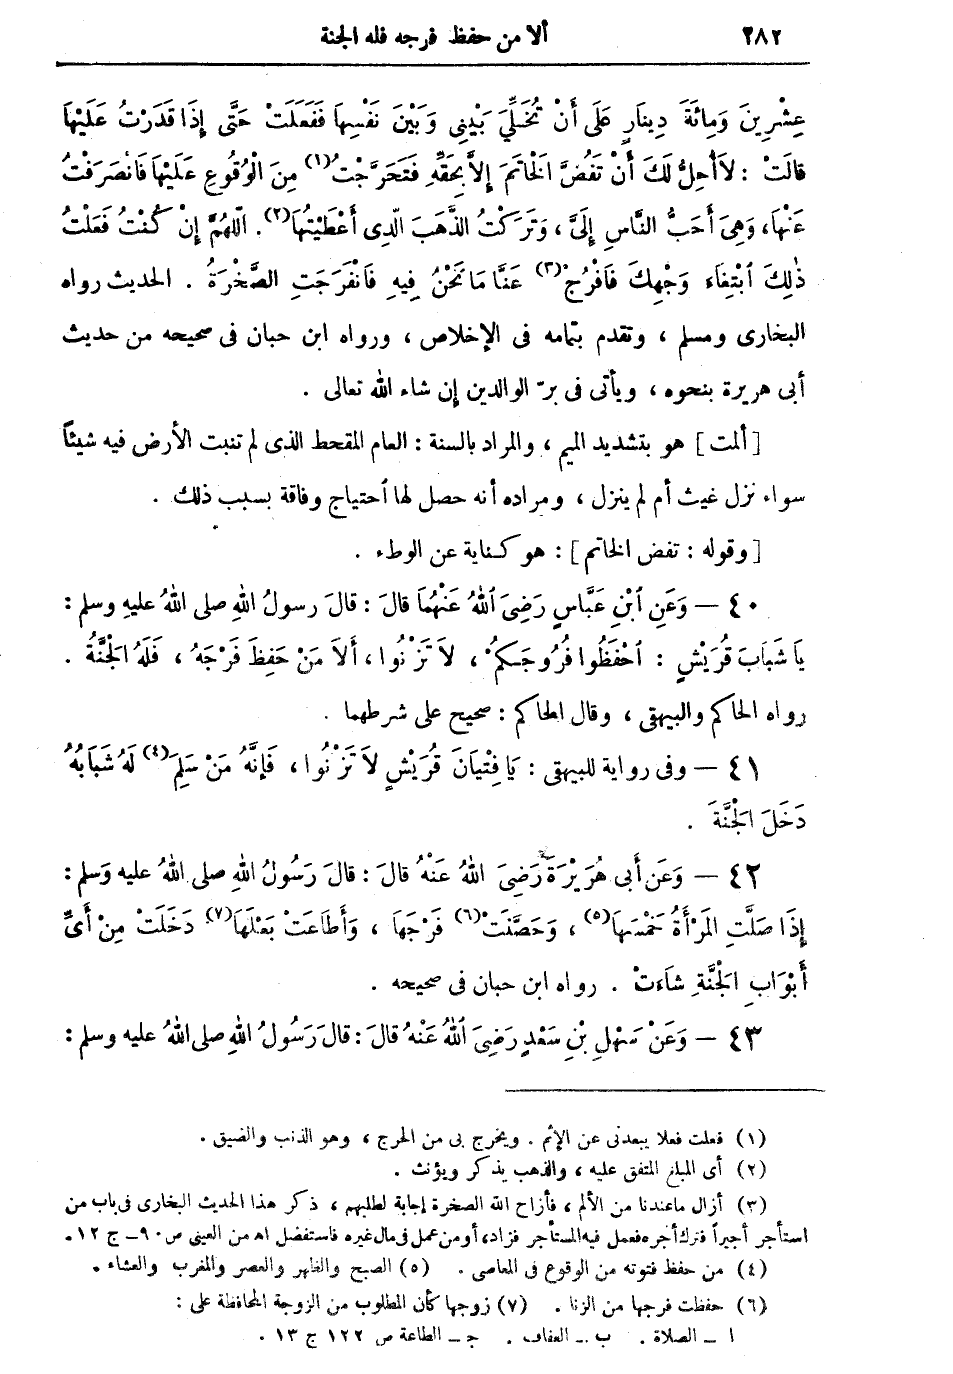 ٢٨٢ ألا من حفظ فرجه فله الجنة
عِشْرِينَ وَمِائَةَ دِينَارٍ عَلَى أَنْ تُخَلِّيَ بَيْنِى وَبَيْنَ نَفْسِهَا فَفَعَلَتْ حَتَّى إِذَا قَدَرْتُ عَلَيْهَا
قالَتْ : لاَ أُحِلُّ لَكَ أَنْ تَفُضَّ الْخَاتَمَ إِلاَّ بِحَقِّهِ فَتَحَرَّجْتُ(١) مِنَ الْوُقُوعِ عَلَيْهَا فَانْصَرَفْتُ
عَنْهَا، وَهِىَ أَحَبُّ النَّاسِ إِلَىَّ ، وَتَرَكْتُ الذَّهَبَ الَّذِى أَعْطَيْتُهَا(٢). اَللّٰهُمَّ إِنْ كُنْتُ فَعَلْتُ
ذٰلِكَ ابْتِغَاءَ وَجْهِكَ فَافْرُجْ(٣) عَنَّا مَا نَحْنُ فِيهِ فَانْفَرَجَتِ الصَّخْرَةُ . الحديث رواه
البخارى ومسلم ، وتقدم بتمامه فى الإخلاص ، ورواه ابن حبان فى صحيحه من حديث
أبى هريرة بنحوه ، ويأتى فى برّ الوالدين إن شاء الله تعالى .
[ ألمت ] هو بتشديد الميم ، والمراد بالسنة : العام المقحط الذى لم تنبت الأرض فيه شيئاً
سواء نزل غيث أم لم ينزل ، ومراده أنه حصل لها احتياج وفاقة بسبب ذلك .
[ وقوله : تفض الخاتم ] : هو كناية عن الوطء .
٤٠ — وَعَنِ ابْنِ عَبَّاسٍ رَضِىَ اللهُ عَنْهُمَا قالَ : قالَ رسولُ اللهِ صلى اللهُ عليهِ وسلم :
يَا شَبَابَ قُرَيْشٍ : احْفَظُوا فُرُوجَكمُ ، لاَ تَزْنُوا، أَلاَ مَنْ حَفِظَ فَرْجَهُ ، فَلَهُ الجَنَّةُ .
رواه الحاكم والبيهقى ، وقال الحاكم : صحيح على شرطهما .
٤١ — وفى رواية للبيهقى : يَا فِتْيَانَ قُرَيْشٍ لاَ تَزْنُوا ، فَإِنَّهُ مَنْ سَلِمَ(٤) لَهُ شَبَابُهُ
دَخَلَ الجَنَّةَ .
٤٢ — وَعَن أَبِى هُرَيْرَةَ رَضِىَ اللهُ عَنْهُ قالَ : قالَ رَسُولُ اللهِ صلى اللهُ عليه وَسلم :
إِذَا صَلَّتِ الْمَرْأَةُ خَمْسَهَا(٥) ، وَحَصَّنَتْ(٦) فَرْجَهَا ، وَأَطَاعَتْ بَعْلَهَا(٧) دَخَلَتْ مِنْ أَىِّ
أَبْوَابِ الجَنَّةِ شاءَتْ . رواه ابن حبان فى صحيحه .
٤٣ — وَعَنْ سَهْلِ بْنِ سَعْدٍ رَضِىَ اللهُ عَنْهُ قالَ : قالَ رَسُولُ اللهِ صلى اللهُ عليه وسلم :
(١) فعلت فعلا يبعدنى عن الإثم . ويخرج بى من الحرج ، وهو الذنب والضيق .
(٢) أى المبلغ المتفق عليه ، والذهب يذكر ويؤنث .
(٣) أزال ماعندنا من الألم ، فأزاح الله الصخرة إجابة لطلبهم ، ذكر هذا الحديث البخارى فى باب من
استأجر أجيراً فترك أجره فعمل فيه المستأجر فزاد، أو من عمل فى مال غيره فاستفضل اه من العينى ص ٩٠ - ج ١٢ .
(٤) من حفظ فتوته من الوقوع فى المعاصى . (٥) الصبح والظهر والعصر والمغرب والعشاء .
(٦) حفظت فرجها من الزنا . (٧) زوجها كأن المطلوب من الزوجة المحافظة على :
ا ــ الصلاة . ب ــ العفاف . جـ ــ الطاعة ص ١٢٢ ج ١٣ .